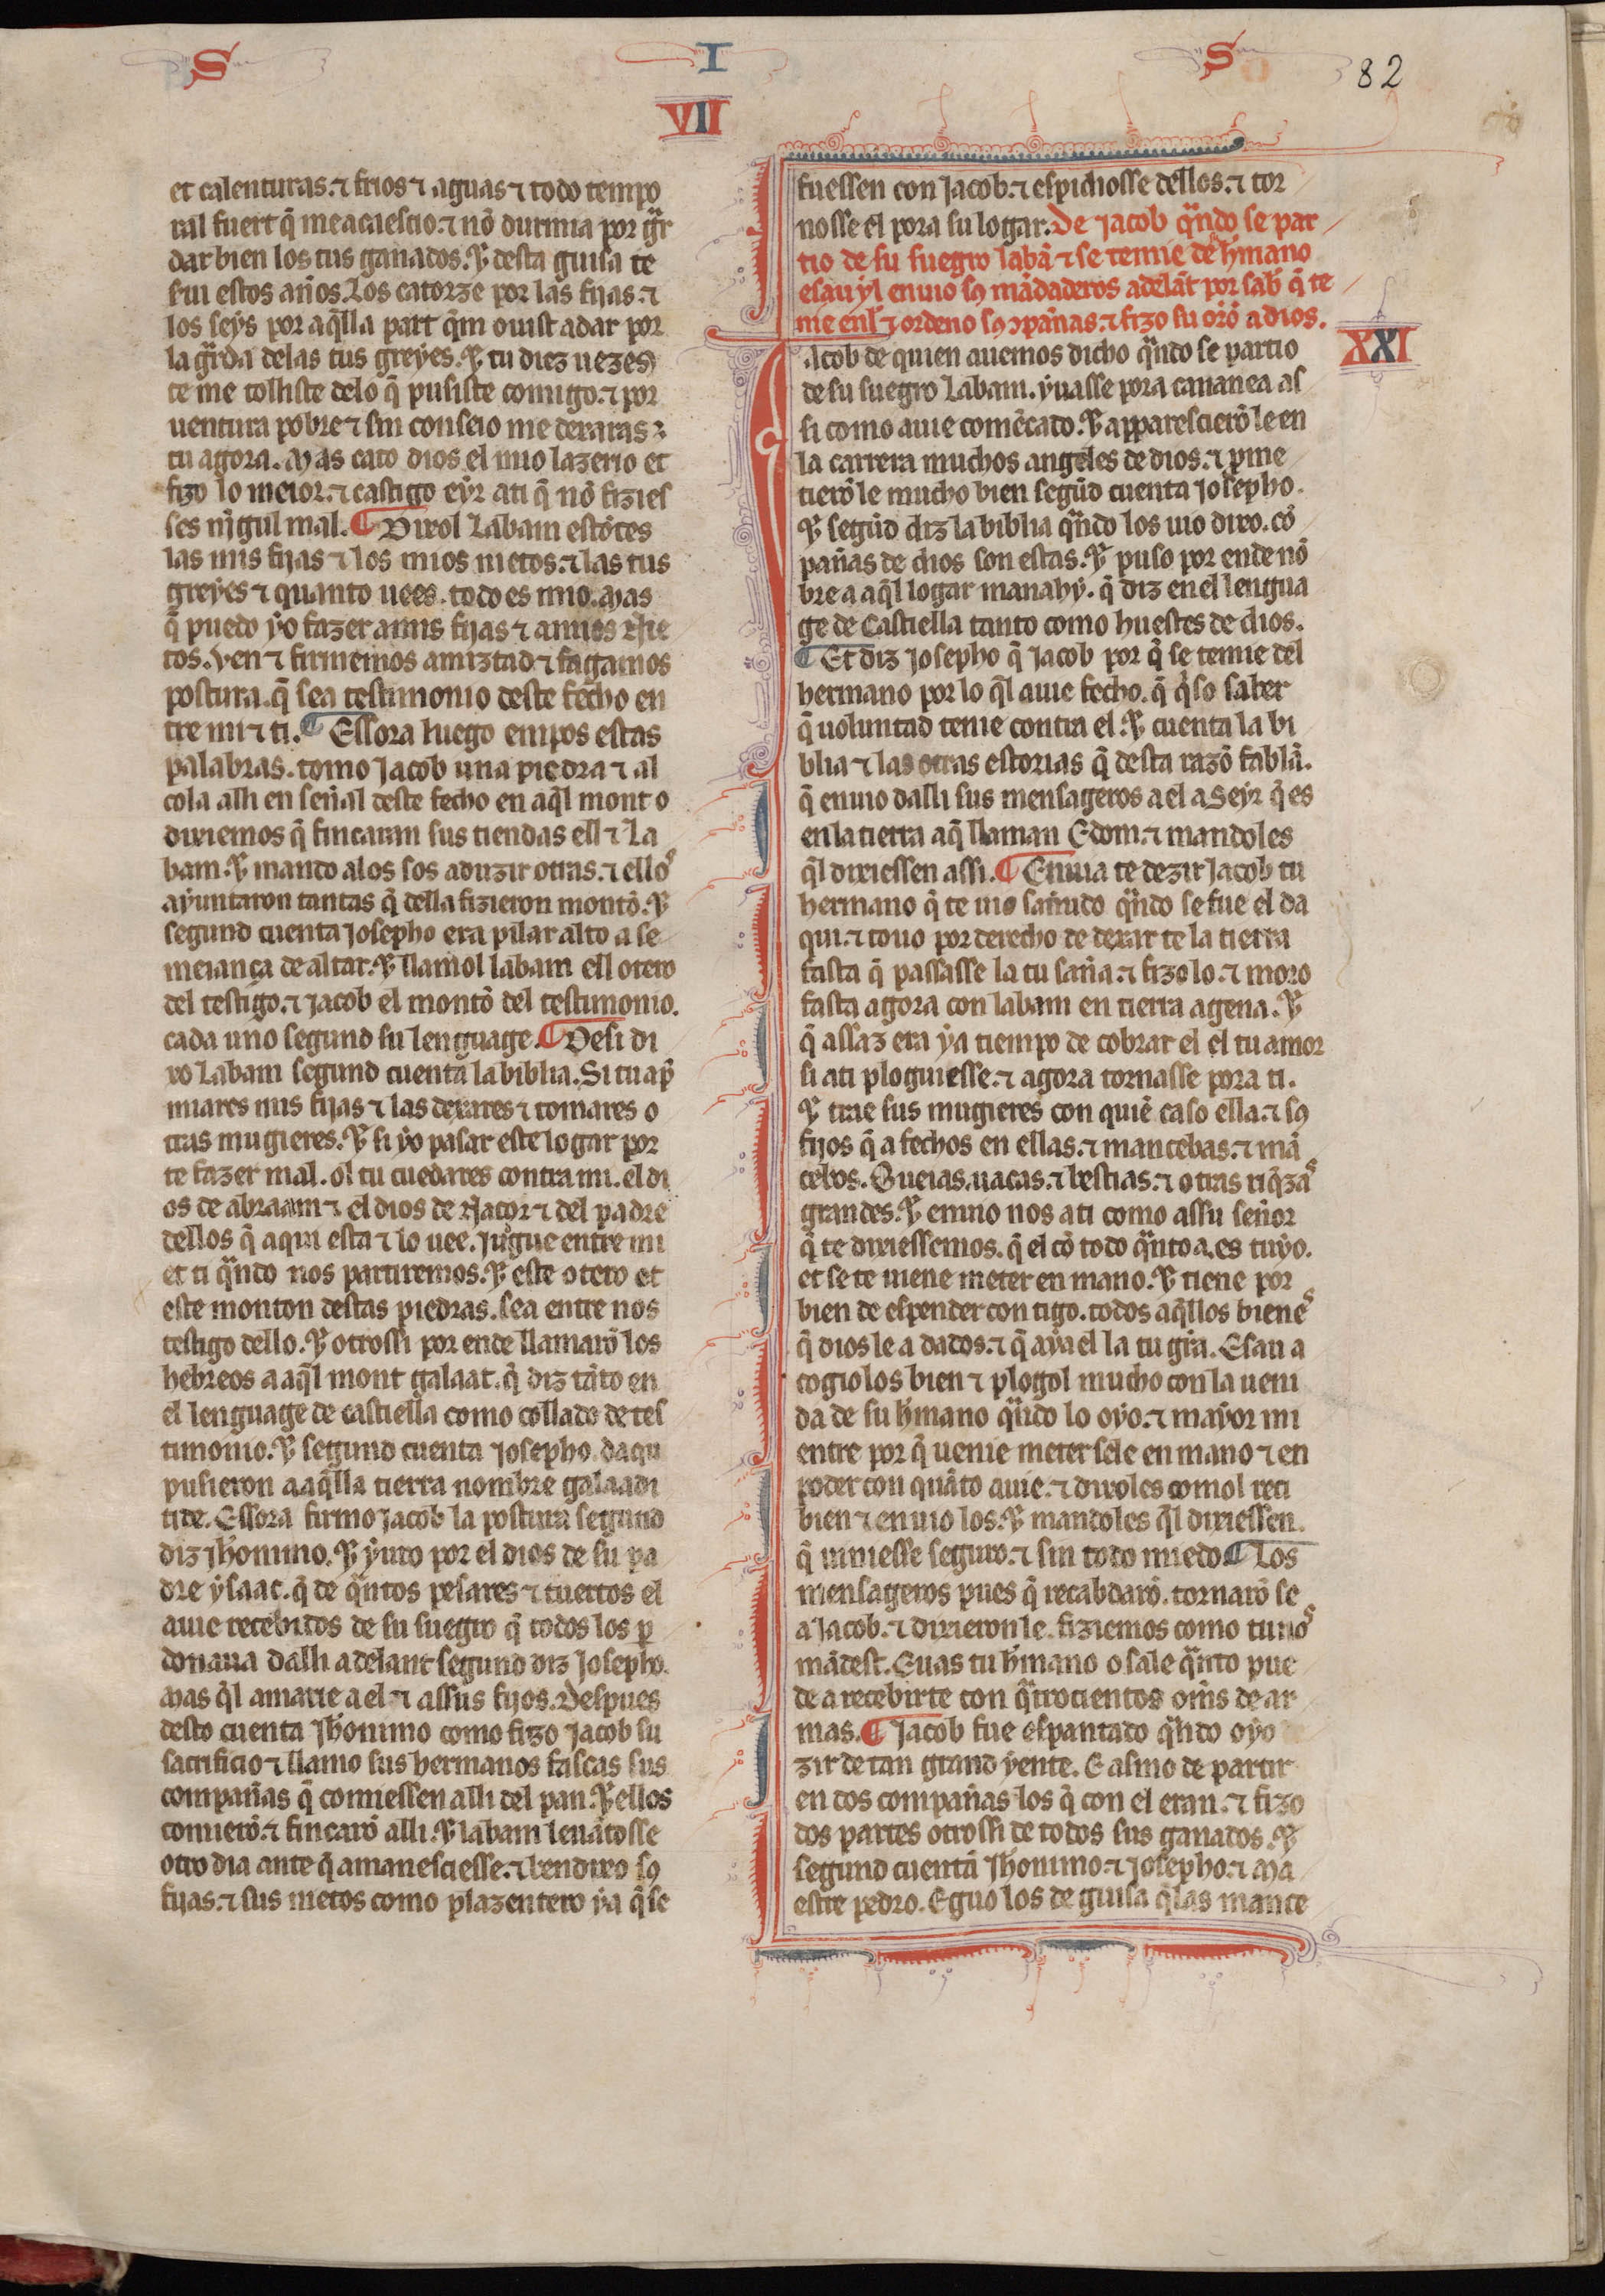 S I S 82
VII
et calenturas. ⁊ frios ⁊ aguas ⁊ todo tempo
ral fuert q̃ me acaescio. ⁊ nõ durmia por gr̃
dar bien los tus ganados. Ɛ desta guisa te
serui estos annos. Los catorze por las fijas. ⁊
los seys por aq̃lla part q̃m ouist a dar por
la gr̃da delas tus greyes. Ɛ tu diez uezes
te me tolliste delo q̃ pusiste comigo. ⁊ por
uentura pobre ⁊ sin conseio me dexaras
tu agora. Mas cato dios el mio lazerio et
fizo lo meior. ⁊ castigo eyr ati q̃ nõ fizies
ses nĩgul mal. ¶ Dixol Labam estõces
las mis fijas ⁊ los mios nietos. ⁊ las tus
greyes ⁊ quanto uees. todo es mio. Mas
q̃ puedo yo fazer a mis fijas ⁊ a mios nie
tos. Ven ⁊ firmemos amiztad ⁊ fagamos
postura. q̃ sea testimonio deste fecho en
tre mi ⁊ ti. ¶ Essora luego empos estas
palabras. tomo Jacob una piedra ⁊ al
çola alli en sennal deste fecho en aq̃l mont o
dixiemos q̃ fincaran sus tiendas ell ⁊ La
bam. Ɛ mando alos sos aduzir otras. ⁊ ellos
ayuntaron tantas q̃ della fizieron montõ. Ɛ
segund cuenta Josepho era pilar alto a se
meiança de altar. Ɛ llamol labam ell otero
del testigo. ⁊ Jacob el montõ del testimonio.
cada uno segund su lenguage. ¶ Desi di
xo Labam segund cuenta la biblia. Si tu ap̃
miares mis fijas ⁊ las dexares ⁊ tomares o
tras mugieres. Ɛ si yo pasar este logar por
te fazer mal. ol tu cuedares contra mi. el di
os de abraam ⁊ el dios de Nacor ⁊ del padre
dellos q̃ aqui esta ⁊ lo uee. Jugue entre mi
et ti q̃ndo nos partiremos. Ɛ este otero et
este monton destas piedras. sea entre nos
testigo dello. Ɛ otrossi por ende llamarõ los
hebreos a aq̃l mont galaat. q̃ diz tãto en
el lenguage de castiella como collado de tes
timonio. Ɛ segund cuenta Josepho. daqui
pusieron a aq̃lla tierra nombre galaadi
tide. Essora firmo Jacob la postura segund
diz Jheronimo. Ɛ yuro por el dios de su pa
dre ysaac. q̃ de q̃ntos pesares ⁊ tuertos el
auie recebidos de su suegro q̃ todos los ꝑ
donaua dalli adelant segund diz Josepho.
Mas q̃l amarie a el ⁊ assus fijos. Despues
desto cuenta Jheronimo como fizo Jacob su
sacrificio ⁊ llamo sus hermanos fascas sus
compannas q̃ comiessen alli del pan. Ɛ ellos
comierõ. ⁊ fincarõ alli. Ɛ labam leuãtosse
otro dia ante q̃ amanesciesse. ⁊ bendixo sꝯ
fijas. ⁊ sus nietos como plazentero ya q̃ se
fuessen con Jacob. ⁊ espidiosse dellos. ⁊ tor
nosse el pora su logar. De Jacob q̃ndo se par
tio de su suegro labã ⁊ se temie de hr̃mano
esau yl enuio sꝯ mãdaderos adelãt por sab̃ q̃ te
nie enl ⁊ ordeno sꝯ ɔpannas. ⁊ fizo su oro͂ a dios.
XXI
Jacob de quien auemos dicho q̃ndo se partio
de su suegro Labam. yuasse pora cananea as
si como auie comẽçado. Ɛ apparescierõ le en
la carrera muchos angeles de dios. ⁊ p̃me
tierõ le mucho bien segũd cuenta Josepho.
Ɛ segũd diz la biblia q̃ndo los uio dixo. cõ
pannas de dios son estas. Ɛ puso por ende nõ
bre a aq̃l logar manahy. q̃ diz en el lengua
ge de Castiella tanto como huestes de dios.
¶ Et diz Josepho q̃ Jacob por q̃ se temie del
hermano por lo q̃l auie fecho. q̃ q̃so saber
q̃ uoluntad tenie contra el. Ɛ cuenta la bi
blia ⁊ las otras estorias q̃ desta razõ fablã.
q̃ enuio dalli sus mensageros a el a Seyr q̃ es
en la tierra a q̃ llaman Edom. ⁊ mandoles
q̃l dixiessen assi. ¶ Enuia te dezir Jacob tu
hermano q̃ te uio sannudo q̃ndo se fue el da
qui. ⁊ touo por derecho de dexar te la tierra
fasta q̃ passasse la tu sanna. ⁊ fizo lo. ⁊ moro
fasta agora con labam en tierra agena. Ɛ
q̃ assaz era ya tiempo de cobrar el el tu amor
si ati ploguiesse. ⁊ agora tornasse pora ti.
Ɛ trae sus mugieres con quiẽ caso ella. ⁊ sꝯ
fijos q̃ a fechos en ellas. ⁊ mancebas. ⁊ mã
cebos. Oueias. uacas. ⁊ bestias. ⁊ otras riq̃zas
grandes. Ɛ enuio nos ati como assu sennor
q̃ te dixiessemos. q̃ el cõ todo q̃nto a. es tuyo.
et se te uiene meter en mano. Ɛ tiene por
bien de espender contigo. todos aq̃llos bienes
q̃ dios le a dados. ⁊ q̃ aya el la tu gr̃a. Esau a
cogiolos bien ⁊ plogol mucho con la ueni
da de su hr̃mano q̃ndo lo oyo. ⁊ mayor mi
entre por q̃ uenie meter sele en mano ⁊ en
poder con quãto auie. ⁊ dixoles comol reci
bien ⁊ enuio los. Ɛ mandoles q̃l dixiessen.
q̃ uiniesse seguro. ⁊ sin todo miedo. ¶ Los
mensageros pues q̃ recabdarõ. tornarõ se
a Jacob. ⁊ dixieronle. fiziemos como tu nos
mãdest. Euas tu hr̃mano o sale q̃nto pue
de a recebirte con q̃trocientos om̃s de ar
mas. ¶ Jacob fue espantado q̃ndo oyo
zir de tan grand yente. E asmo de partir
en dos compannas los q̃ con el eran. ⁊ fizo
dos partes otrossi de todos sus ganados. Ɛ
segund cuentã Jheronimo. ⁊ Josepho. ⁊ Ma
estre pedro. Eguo los de guisa q̃ las mante